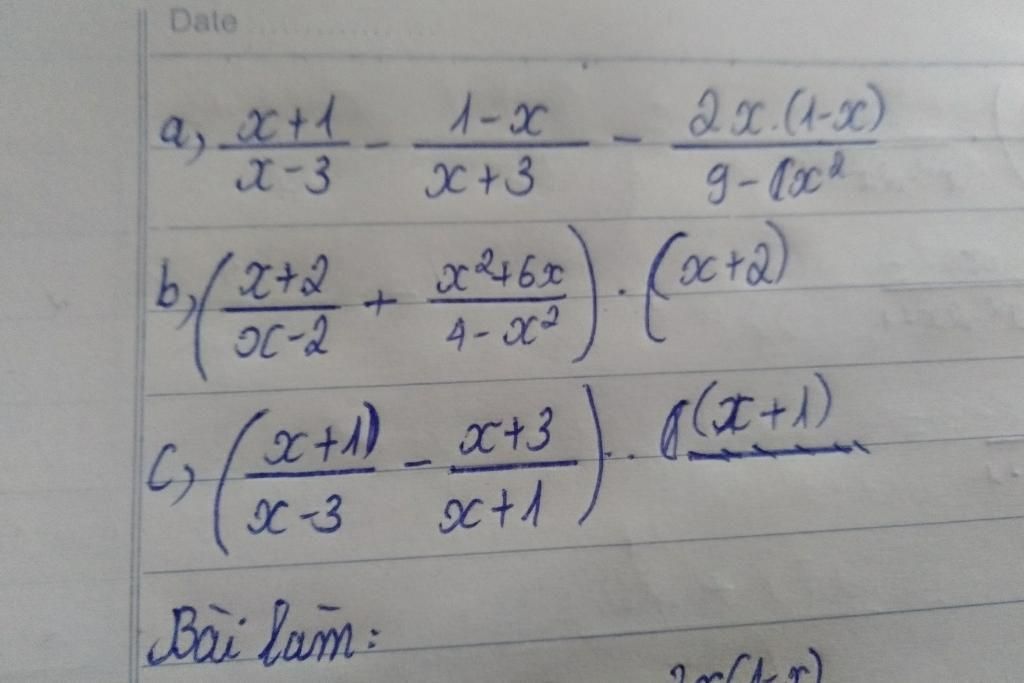 Date
a, (x+1)/(x-3) - (1-x)/(x+3) - (2x.(1-x))/(9-x²)
b, ((x+2)/(x-2) + (x²+6x)/(4-x²)) . (x+2)
c, ((x+1)/(x-3) - (x+3)/(x+1)) . (x+1)
Bài làm:
2x(1-x)